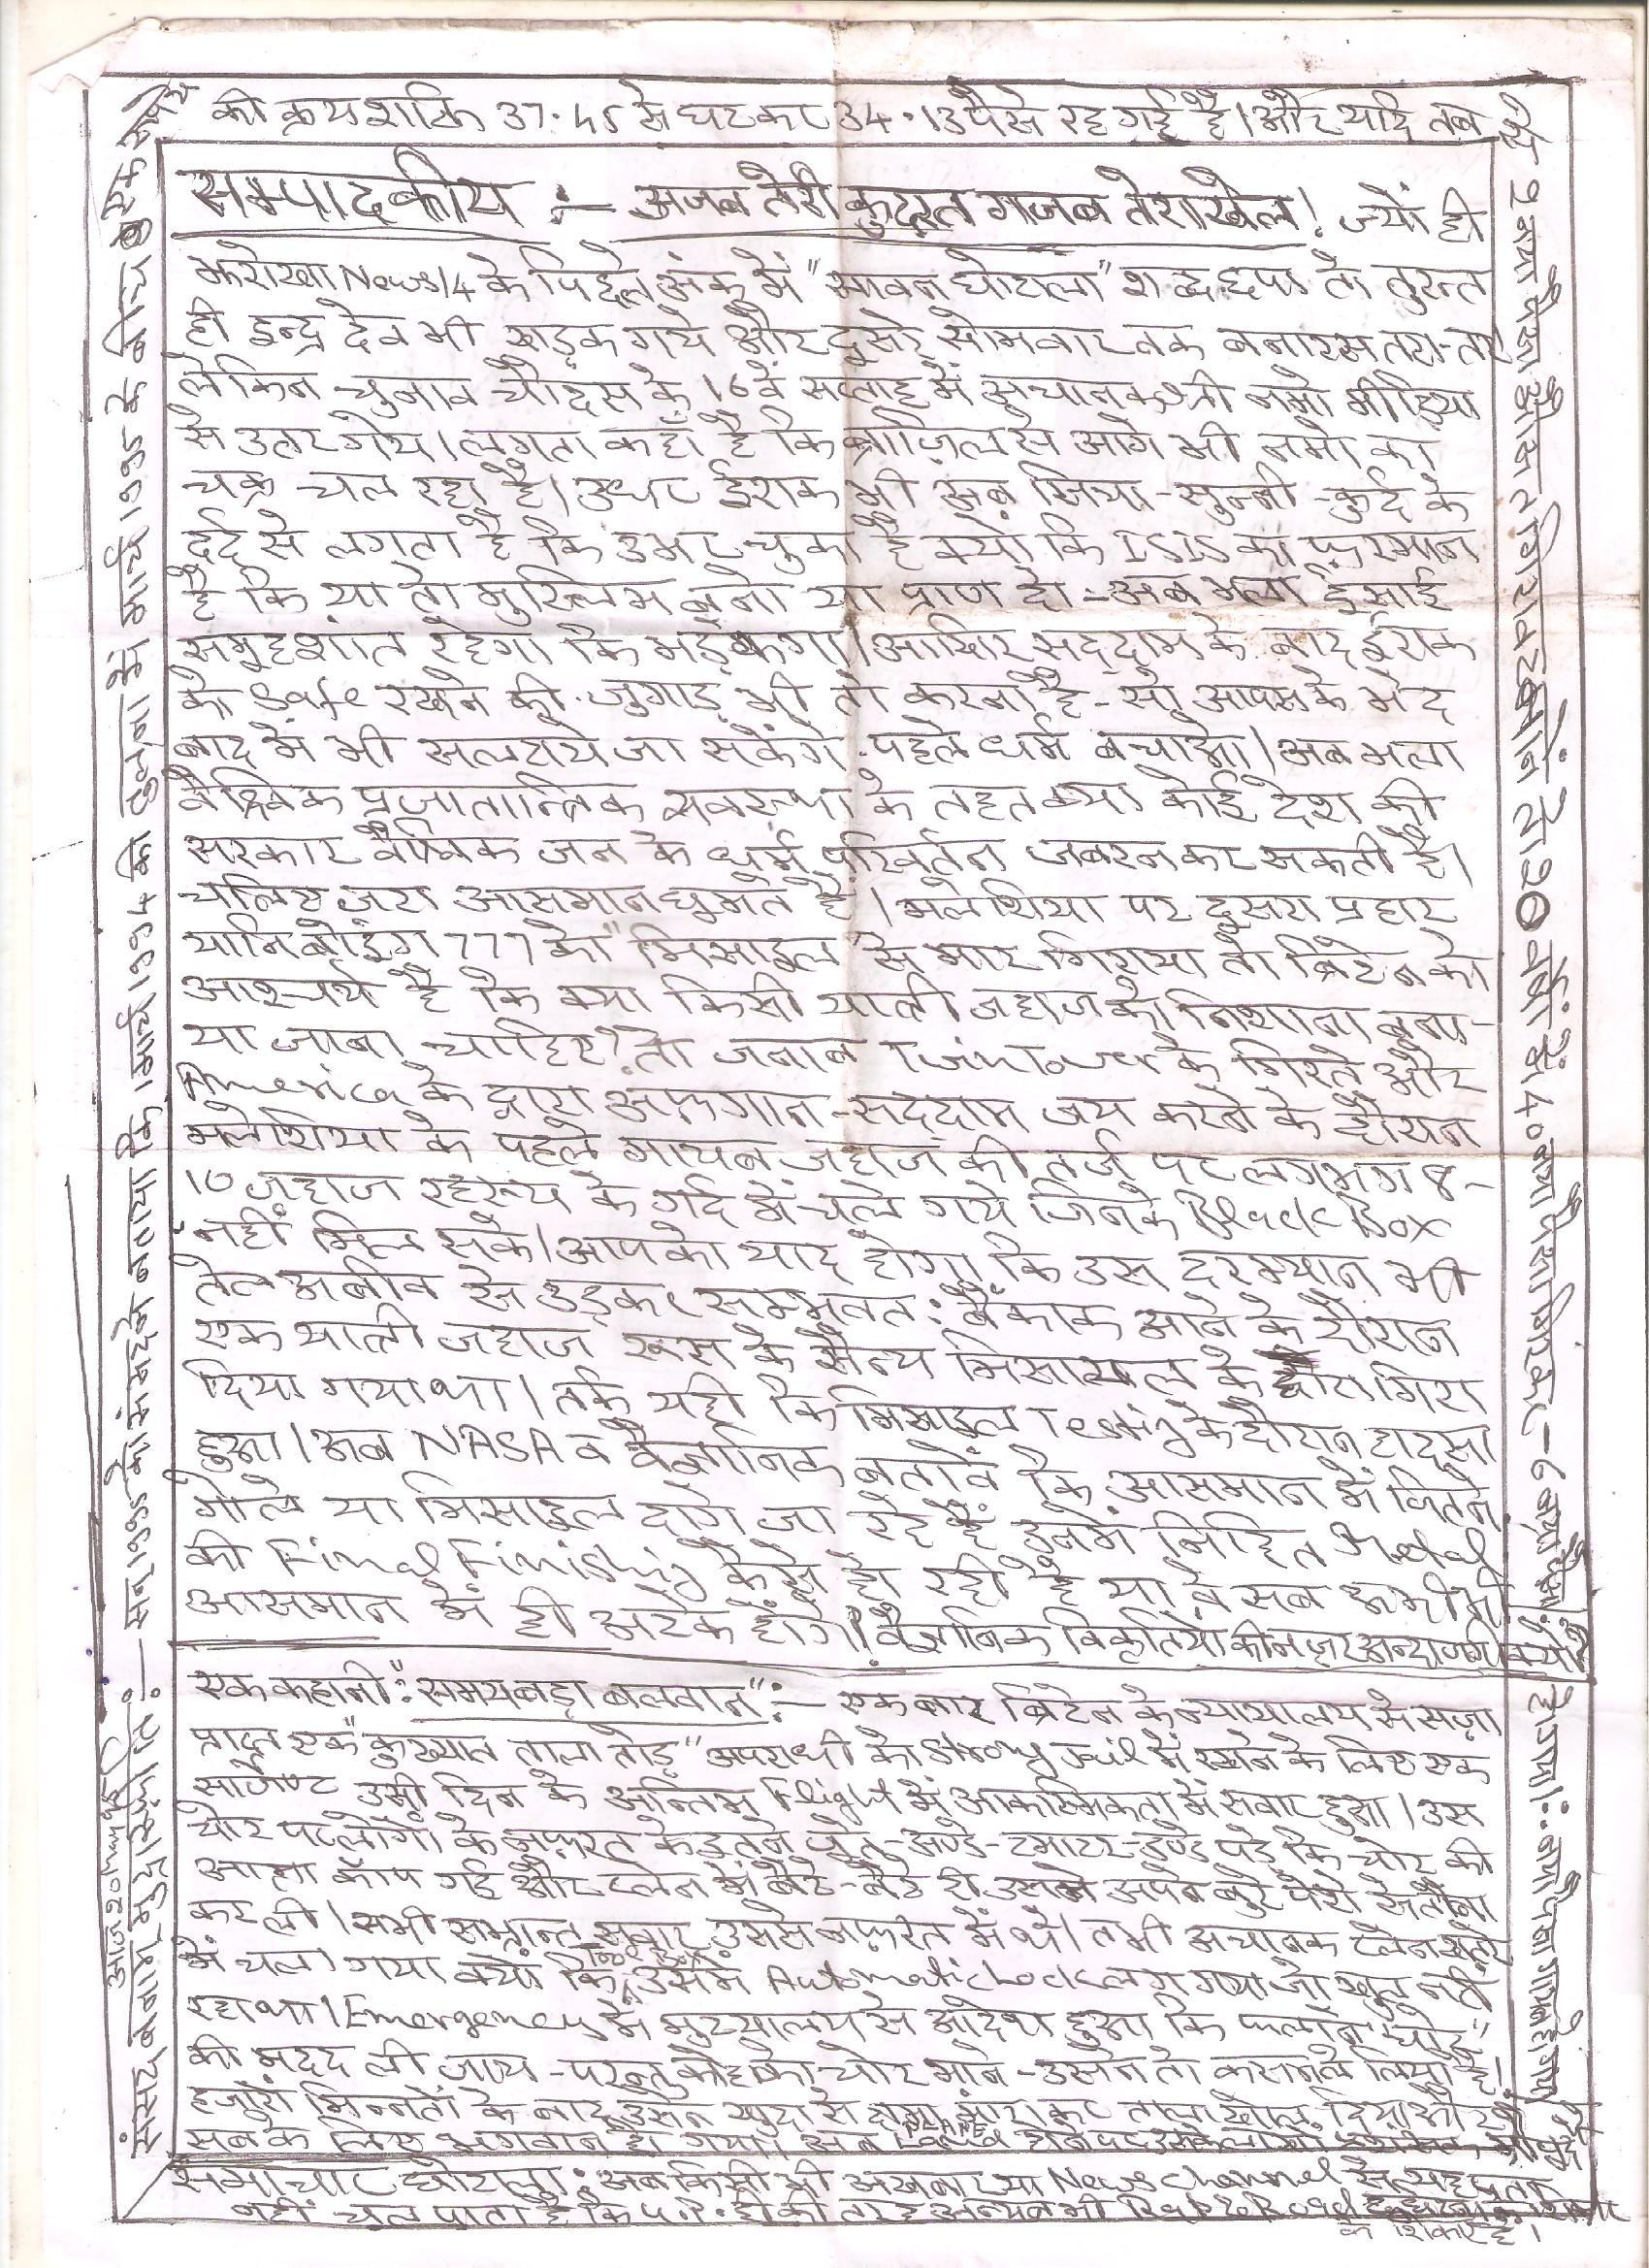 की क्रयशक्ति 37.45 से घटकर 34.13 पैसे रह गई है। और यदि तब
सम्पादकीय :- अजब तेरी कुदरत गजब तेरा खेल! ज्यों ही
झरोखा News/4 के पिछले अंक में "सावन घोटाला" शब्द छपा तो तुरन्त
ही इन्द्र देव भी भड़क गये और दूसरे सोमवार तक बनारस तरा-तर
लेकिन चुनाव चौदस के 16 वें सप्ताह में अचानक श्री नमो मीडिया
से उतर गये। लगता कहाँ है कि ब्राजिल से आगे भी नमो का
चक्र चल रहा है। उधर ईराक भी अब सिया-सुन्नी-कुर्द के
दर्द से लगता है कि उभर चुका है क्यों कि ISIS का फ़रमान
है कि या तो मुस्लिम बनो या प्राण दो - अब भला ईसाई
समुह शांत रहेगा कि भड़केगा। आखिर सद्दाम के बाद ईराक
को safe रखने की जुगाड़ भी तो करना है - सो आपस के भेद
बाद में भी सलटाये जा सकेंगे. पहले धर्म बचाओ। अब भला
वैश्विक प्रजातान्त्रिक व्यवस्था के तहत क्या कोई देश की
सरकार जन के धर्म परिवर्तन जबरन कर सकती है।
चलिए ज़रा आसमान घुमते हैं। मलेशिया पर दुसरा प्रहार
यानि बोइंग 777 को "मिसाइल" से मार गिराया तो ब्रिटेन को
आश्चर्य है कि क्या किसी यात्री जहाज को निशाना बना-
या जाना चाहिए? तो जनाब Twin Tower के गिरते और
America के द्वारा अफ़गान-सद्दाम जय करने के दौरान
मलेशिया के पहले गायब जहाज की तर्ज पर लगभग 8-
10 जहाज रहस्य के गर्द में चले गये जिनके Black Box
नहीं मिल सके। आपको याद होगा कि उस दरम्यान भी
तेल अबीब से उड़कर सम्भवत: बैंकाक आने के दौरान
एक यात्री जहाज रूस के सैन्य मिसायल के द्वारा गिरा
दिया गया था। तर्क यही कि मिसाइल Testing के दौरान हादसा
हुआ। अब NASA व वैज्ञानिक बतावें कि आसमान में जितने
गोले या मिसाइल दागे जा रहे हैं उनमें निहित Metal
की Final Finishing कैसे हो रही है या वे सब अभी भी
आसमान में ही अटके होंगे। वैज्ञानिक विकृतियों की नज़र अन्दाजगी क्यों?
एक कहानी: "समय बड़ा बलवान" :- एक बार ब्रिटेन के न्यायालय से सज़ा
प्राप्त एक "कुख्यात ताला तोड़" अपराधी को strong Jail में रखने के लिए एक
सार्जेण्ट उसी दिन के अन्तिम Flight में आकस्मिकता में सवार हुआ। उस
चोर पर लोगों के नफ़रत के इतने जूते-अण्डे-टमाटर-डण्डे पड़े कि चोर की
आत्मा काँप गई और प्लेन में बैठे-बैठे ही उसने अपने बुरे पेशे से तौबा
कर ली। सभी सम्भ्रान्त सवार उससे नफ़रत में थे। तभी अचानक प्लेन खतरे
में चला गया क्यों कि उसमें Automatic Lock लग गया जो खुल नहीं
रहा था। Emergency में मुख्यालय से आदेश हुआ कि फलाँने "चोर"
की मदद ली जाय - परन्तु चोर माने - उसने तो कसम ले लिया है।
हजारों मिन्नतों के बाद उसने खुदा से क्षमा माँग कर ताला खोल दिया और
सब के लिए भगवान हो गया। अब
समाचार घोटाला: अब किसी भी अखबार या News Channel से यह पता
नहीं चल पाता है कि U.P. ही की तरह अन्यत्र भी
के शिकार है।
पैसे
1 नया पैसा और रविराव दरबाने में या 20 वर्षों में 40 नया पैसा गिरकर - 6 नया पैसा
हो गया।: नया पैसा गायब हो गया
आज 20 May
संसद बनाम् मुद्रा स्फीति :- सन् 1995 को में मद्दे बताया कि 1 मार्च 1994 की तुलना में मार्च 1995 के बीच मुद्रा